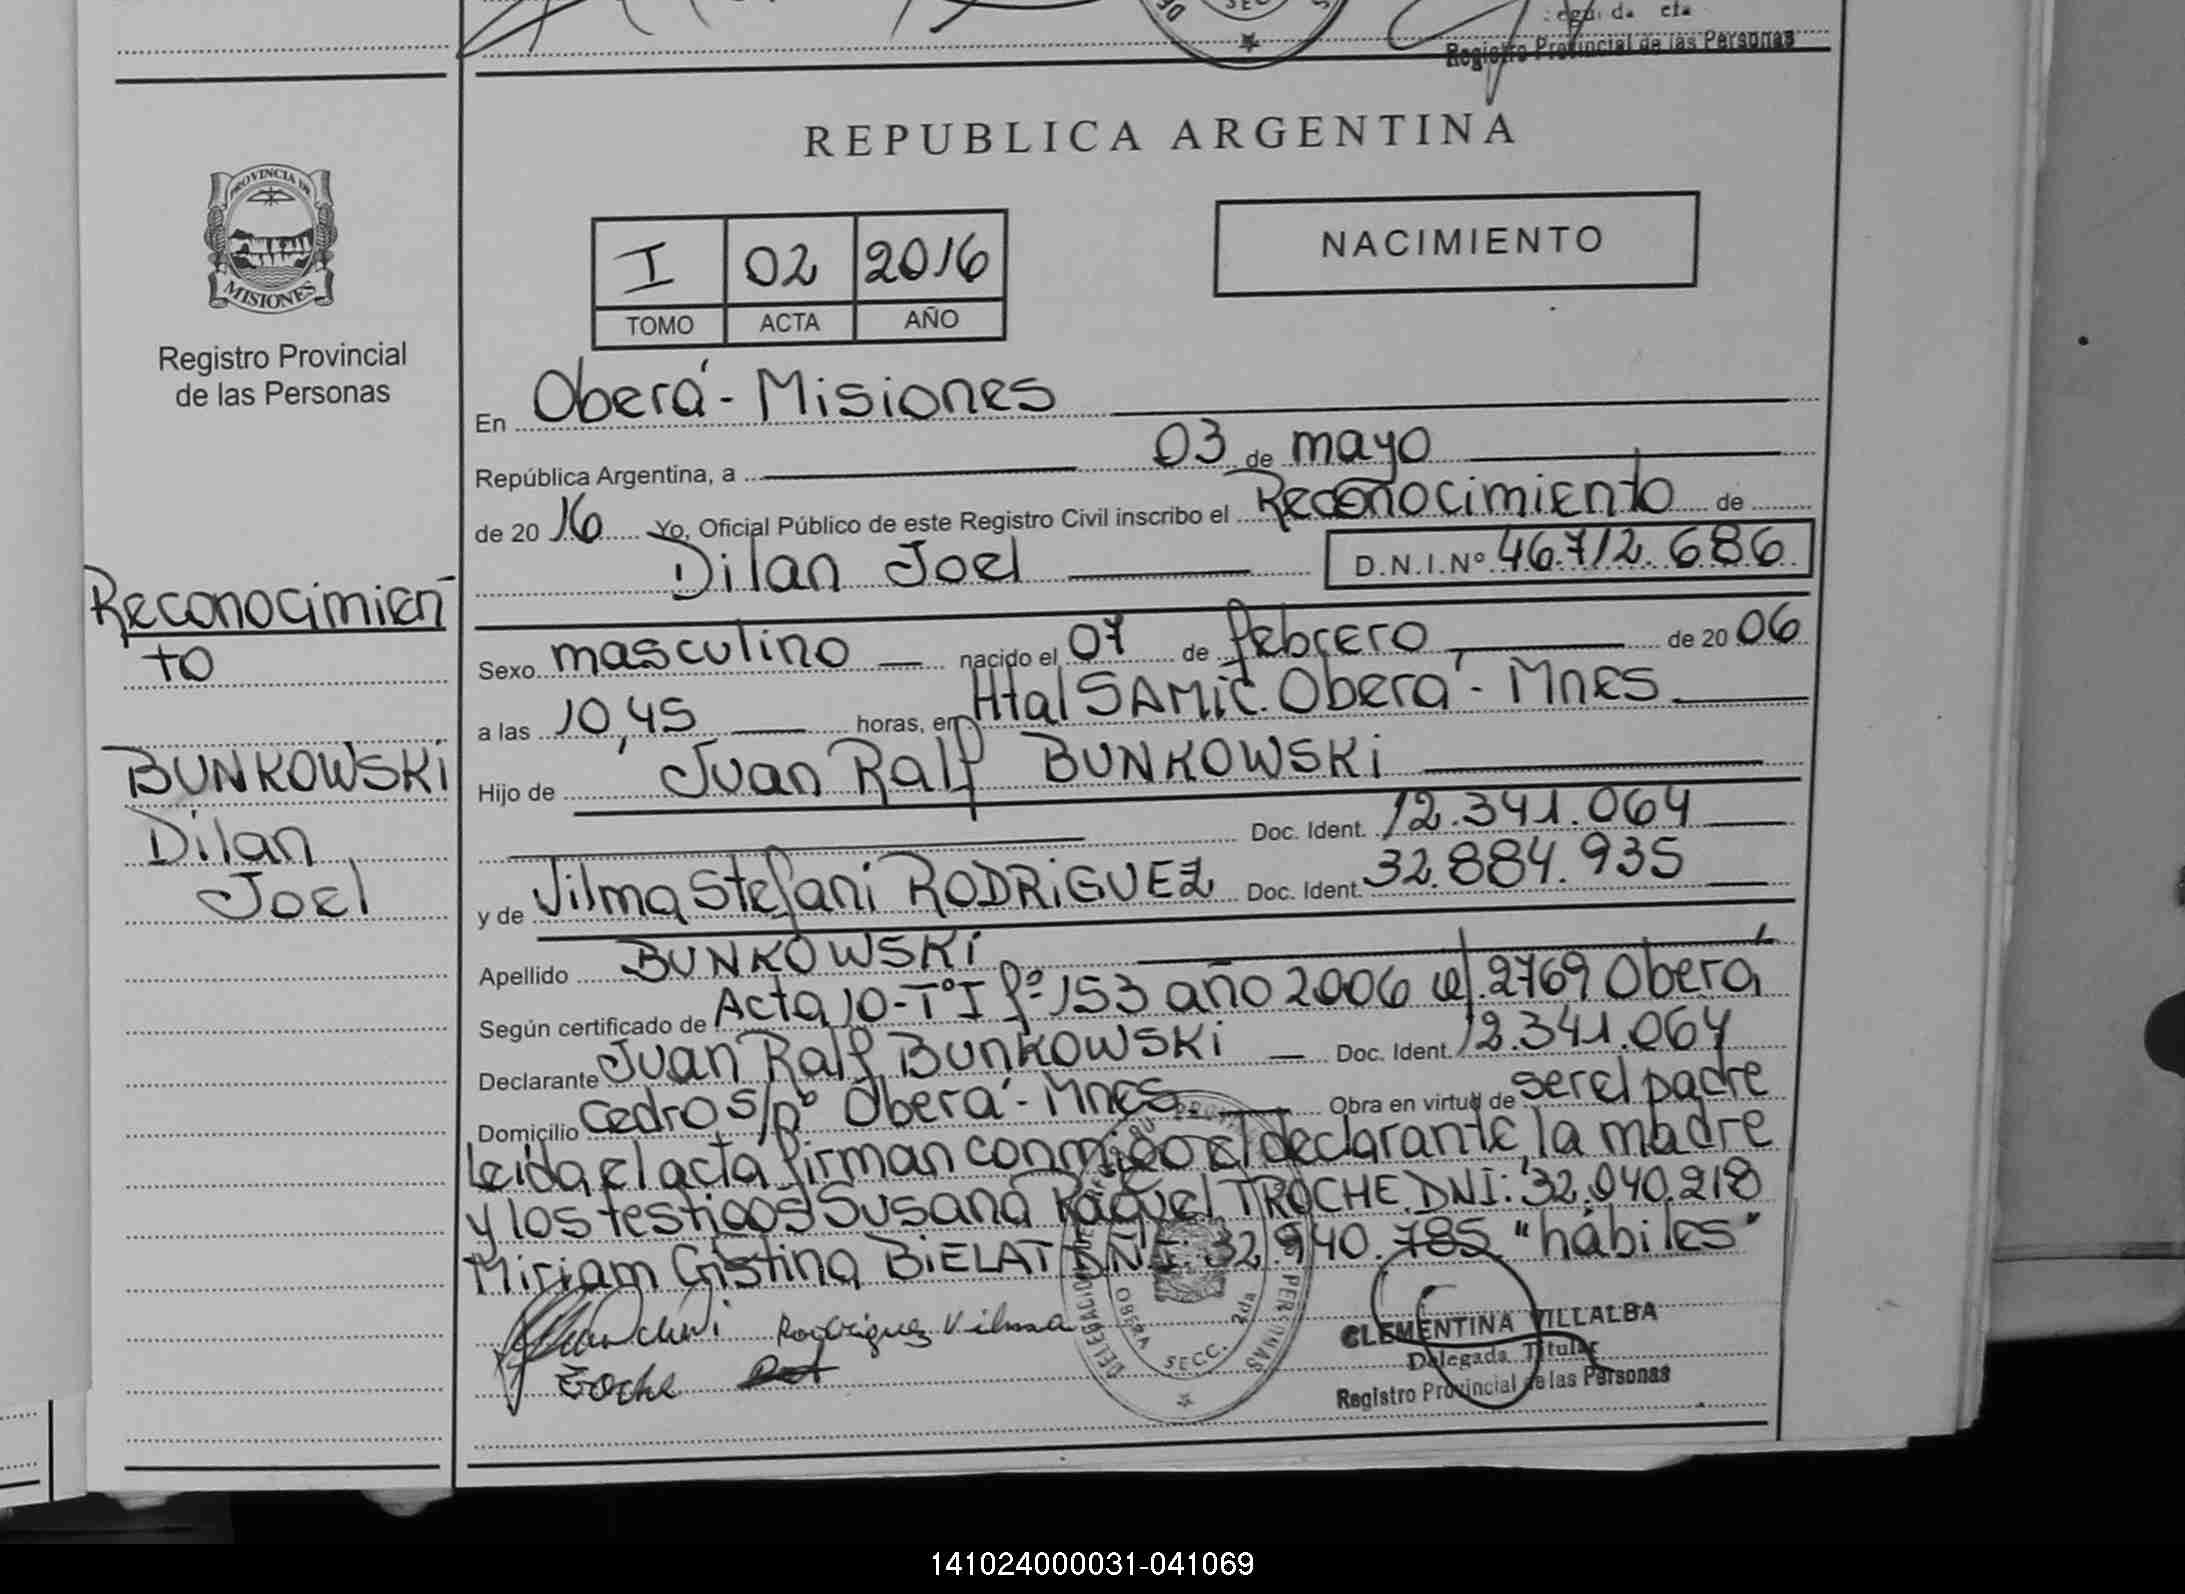 Registro Provincial de las Personas
REPUBLICA ARGENTINA
PROVINCIA DE
MISIONES
Registro Provincial
de las Personas
I 02 2016
TOMO ACTA AÑO
NACIMIENTO
En Oberá - Misiones
República Argentina, a 03 de mayo
de 20 16 Yo, Oficial Público de este Registro Civil inscribo el Reconocimiento de
Dilan Joel D.N.I.Nº 46.712.686
Reconocimien
to
BUNKOWSKi
Dilan
Joel
Sexo masculino nacido el 07 de febrero de 20 06
a las 10,45 horas, en Htal SAMIC. Oberá - Mnes
Hijo de Juan Ralf BUNKOWSKi
Doc. Ident. 12.341.064
y de Vilma Stefani RODRiGUEZ Doc. Ident. 32.884.935
Apellido BUNKOWSKi
Según certificado de Acta 10 - TºI fº 153 año 2006 2769 Oberá
Declarante Juan Ralf BUNKOWSKi Doc. Ident. 12.341.064
Domicilio Cedro s/nº Oberá - Mnes Obra en virtud de ser el padre
Leida el acta firman conmigo el declarante, la madre
y los testigos Susana Raquel TROCHE DNI: 32.040.218
Miriam Cristina BiELAT DNI: 32.940.785 "hábiles"
Rodriguez Vilma
OBERA SECC. 2da
CLEMENTINA VILLALBA
Delegada Titular
Registro Provincial de las Personas
141024000031-041069